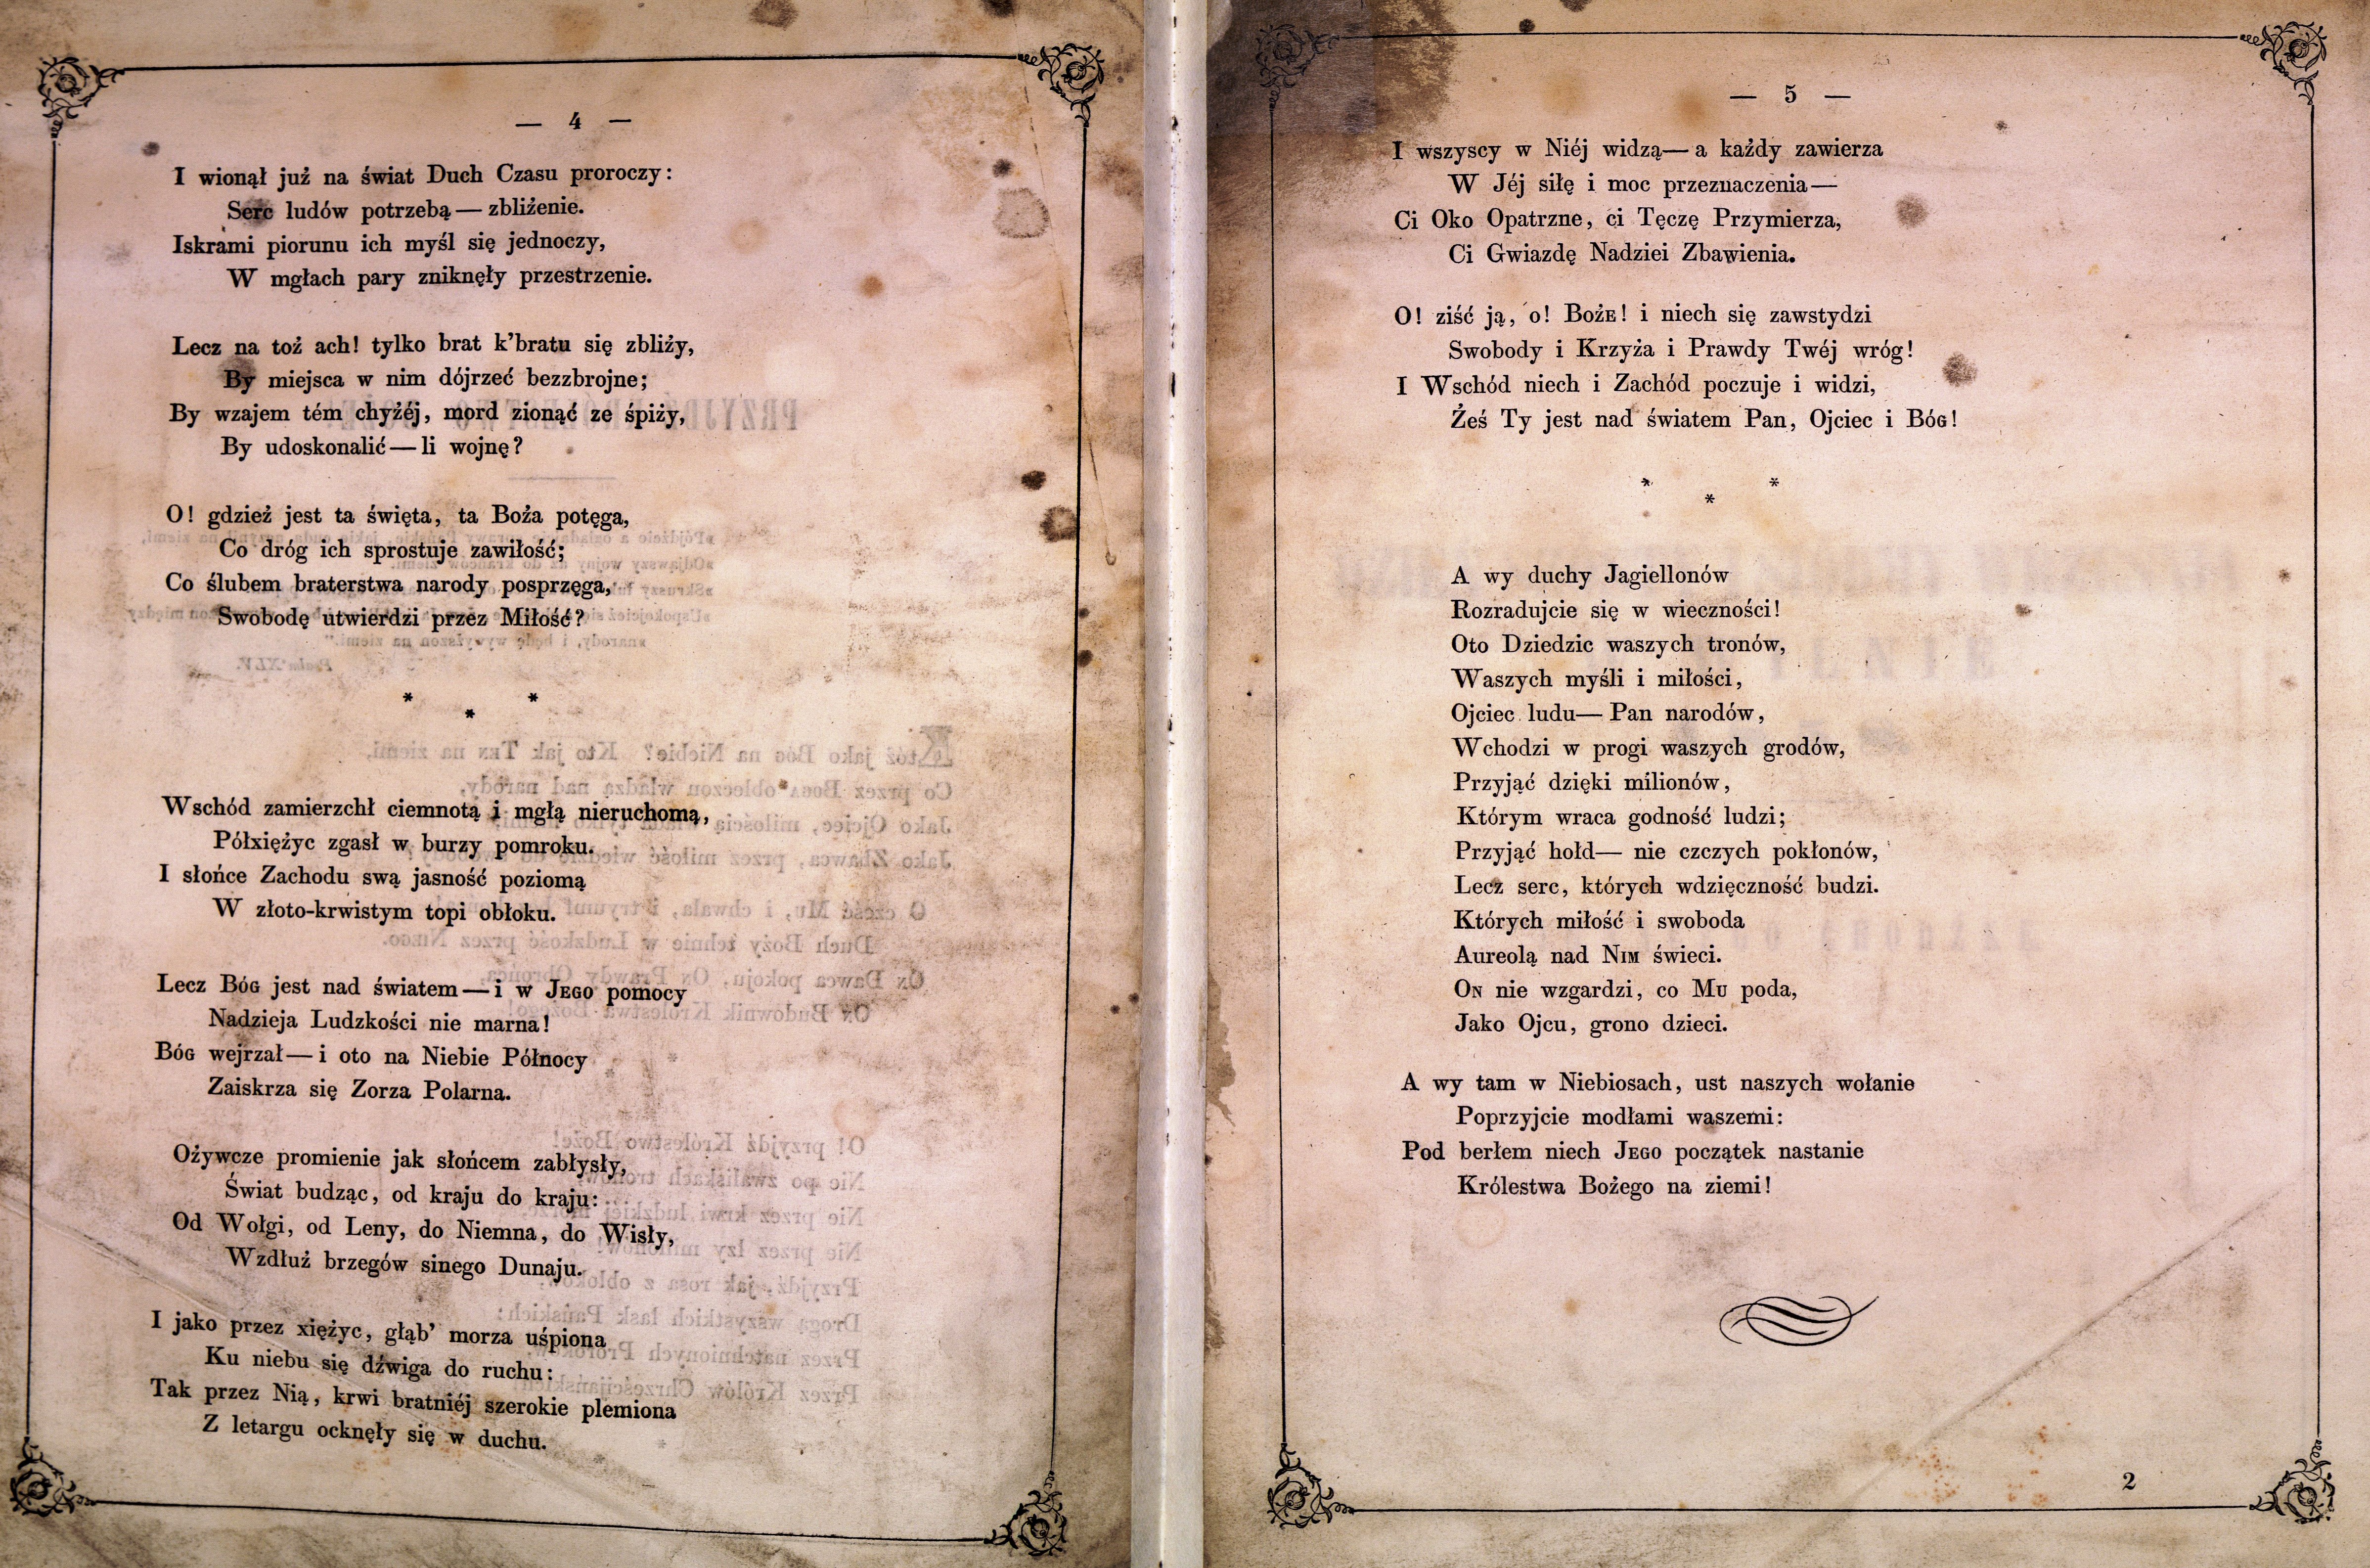 — 4 —
I wionął już na świat Duch Czasu proroczy:
Serc ludów potrzebą — zbliżenie.
Iskrami piorunu ich myśl się jednoczy,
W mgłach pary zniknęły przestrzenie.
Lecz na toż ach! tylko brat k'bratu się zbliży,
By miejsca w nim dójrzeć bezzbrojne;
By wzajem tém chyżéj, mord zionąć ze śpiży,
By udoskonalić — li wojnę?
O! gdzież jest ta święta, ta Boża potęga,
Co dróg ich sprostuje zawiłość;
Co ślubem braterstwa narody posprzęga,
Swobodę utwierdzi przez Miłość?
* * *
Wschód zamierzchł ciemnotą i mgłą nieruchomą,
Półxiężyc zgasł w burzy pomroku.
I słońce Zachodu swą jasność poziomą
W złoto-krwistym topi obłoku.
Lecz BÓG jest nad światem — i w JEGO pomocy
Nadzieja Ludzkości nie marna!
BÓG wejrzał — i oto na Niebie Północy
Zaiskrza się Zorza Polarna.
Ożywcze promienie jak słońcem zabłysły,
Świat budząc, od kraju do kraju:
Od Wołgi, od Leny, do Niemna, do Wisły,
Wzdłuż brzegów sinego Dunaju.
I jako przez xiężyc, głąb' morza uśpiona
Ku niebu się dźwiga do ruchu:
Tak przez Nią, krwi bratniéj szerokie plemiona
Z letargu ocknęły się w duchu.
— 5 —
I wszyscy w Niéj widzą — a każdy zawierza
W Jéj siłę i moc przeznaczenia —
Ci Oko Opatrzne, ci Tęczę Przymierza,
Ci Gwiazdę Nadziei Zbawienia.
O! ziść ją, o! BOŻE! i niech się zawstydzi
Swobody i Krzyża i Prawdy Twéj wróg!
I Wschód niech i Zachód poczuje i widzi,
Żeś Ty jest nad światem Pan, Ojciec i BÓG!
* * *
A wy duchy Jagiellonów
Rozradujcie się w wieczności!
Oto Dziedzic waszych tronów,
Waszych myśli i miłości,
Ojciec ludu — Pan narodów,
Wchodzi w progi waszych grodów,
Przyjąć dzięki milionów,
Którym wraca godność ludzi;
Przyjąć hołd — nie czczych pokłonów,
Lecz serc, których wdzięczność budzi.
Których miłość i swoboda
Aureolą nad NIM świeci.
ON nie wzgardzi, co MU poda,
Jako Ojcu, grono dzieci.
A wy tam w Niebiosach, ust naszych wołanie
Poprzyjcie modłami waszemi:
Pod berłem niech JEGO początek nastanie
Królestwa Bożego na ziemi!
2